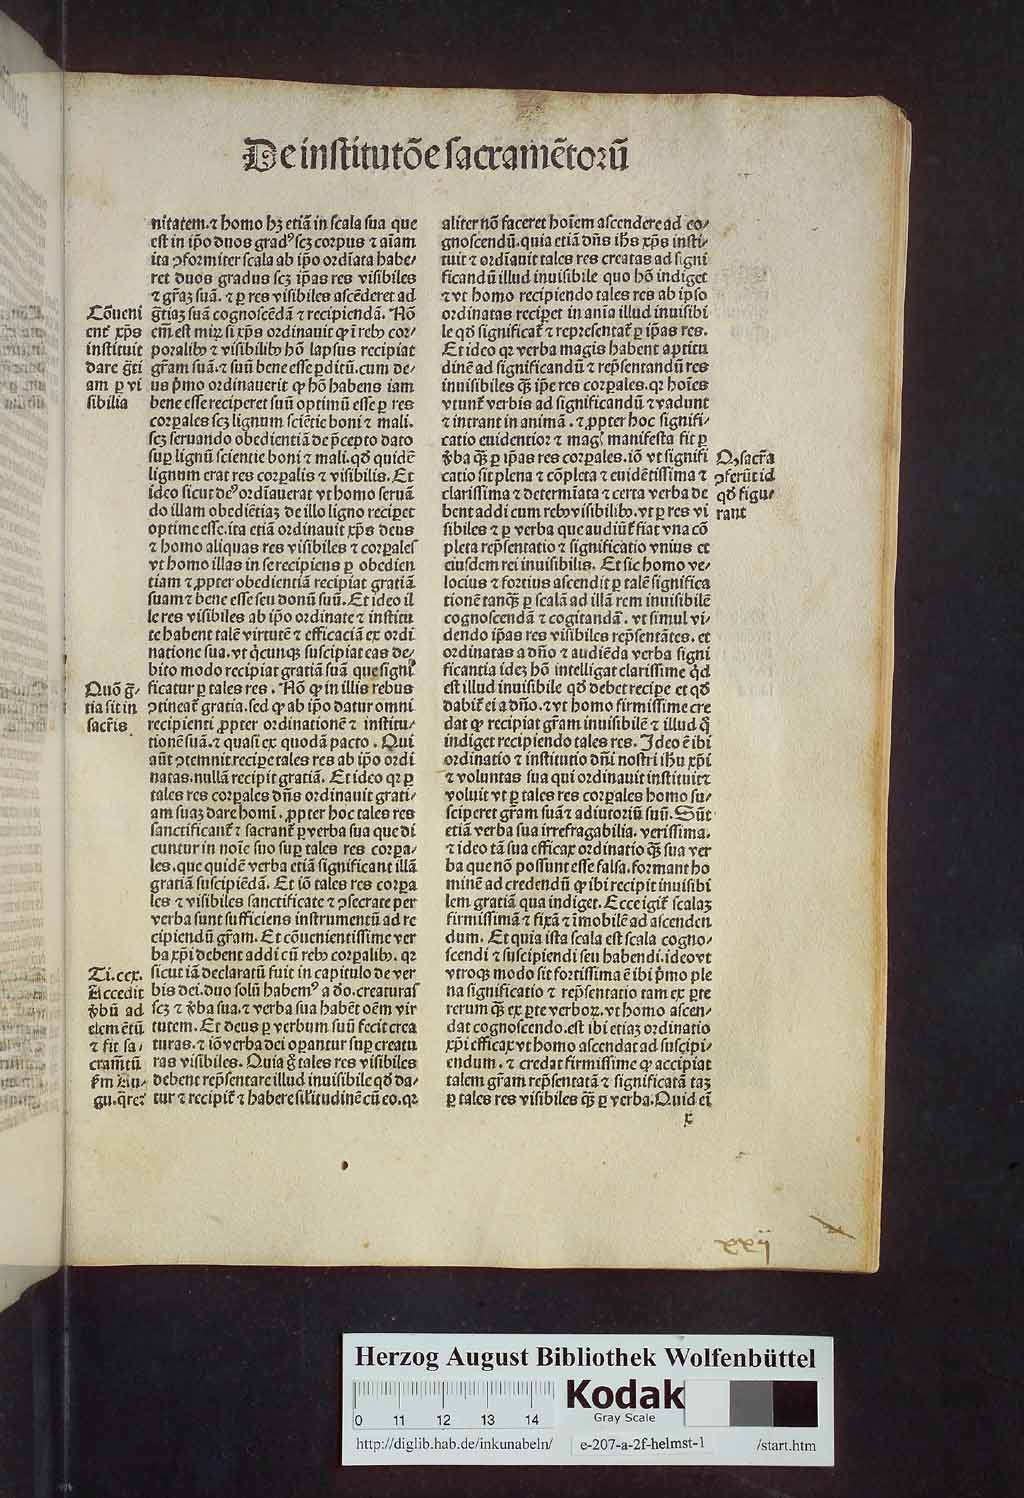 De institutõe sacramẽtorũ
nitatem. ⁊ homo hꝫ etiã in scala sua que
est in ip̄o duos gradꝰ scꝫ corpus ⁊ aĩam
ita ꝯformiter scala ab ip̄o ordĩata habe⸗
ret duos gradus scꝫ ip̄as res visibiles
⁊ gr̄aꝫ suã. ⁊ ꝑ res visibiles ascẽderet ad
Cõueni
g̃tiaꝫ suã cognoscẽdã ⁊ recipiendã. Nõ
ent᷑ xp̄s
em̄ est mirꝫ si xp̄s ordinauit ꝙ ĩ rebꝫ cor⸗
instituit
poralibꝫ ⁊ visibilibꝫ hõ lapsus recipiat
dare g̃ti
gr̄am suã. ⁊ suũ bene esse ꝑditũ. cum de⸗
am ꝑ vi
us p̄mo ordinauerit ꝙ hõ habens iam
sibilia
bene esse reciperet suũ optimũ esse ꝑ res
corꝑales scꝫ lignum sciẽtie boni ⁊ mali.
scꝫ seruando obedientiã de p̄cepto dato
suꝑ lignũ scientie boni ⁊ mali. qd̄ quidẽ
lignum erat res corꝑalis ⁊ visibilis. Et
ideo sicut deꝰ ordĩauerat vt homo seruã
do illam obediẽtiaꝫ de illo ligno reciꝑet
optime esse. ita etiã ordinauit xp̄s deus
⁊ homo aliquas res visibiles ⁊ corꝑales
vt homo illas in se recipiens ꝑ obedien
tiam ⁊ ꝓpter obedientiã recipiat gratiã
suam ⁊ bene esse seu donũ suũ. Et ideo il
le res visibiles ab ip̄o ordinate ⁊ institu
te habent talẽ virtutẽ ⁊ efficaciã ex ordi
natione sua. vt q̇cunqꝫ suscipiat eas de⸗
bito modo recipiat gratiã suã que signi
Quõ g̃⸗
ficatur ꝑ tales res. Nõ ꝙ in illis rebus
tia sit in
ꝯtineat᷑ gratia. sed ꝙ ab ip̄o datur omni
sacr̄is
recipienti ꝓpter ordinationẽ ⁊ institu⸗
tionẽ suã. ⁊ quasi ex quodã pacto. Qui
aũt ꝯtemnit reciꝑe tales res ab ip̄o ordi
natas. nullã recipit gratiã. Et ideo qꝛ ꝑ
tales res corꝑales dñs ordinauit grati⸗
am suaꝫ dare homĩ. ꝓpter hoc tales res
sanctificant᷑ ⁊ sacrant᷑ ꝑ verba sua que di
cuntur in noĩe suo suꝑ tales res corꝑa⸗
les. que quidẽ verba etiã significant illã
gratiã suscipiẽdã. Et iõ tales res corꝑa
les ⁊ visibiles sanctificate ⁊ ꝯsecrate per
verba sunt sufficiens instrumentũ ad re
cipiendũ gr̄am. Et cõuenientissime ver
ba xp̄i debent addi cũ rebꝫ corꝑalibꝫ. qꝛ
Ti. ccx.
sicut iã declaratũ fuit in capitulo de ver
Accedit
bis dei. duo solũ habemꝰ a d̃o. creaturas
v̄bũ ad
scꝫ ⁊ v̄ba sua. ⁊ verba sua habẽt oẽm vir
elemẽtũ
tutem. Et deus ꝑ verbum suũ fecit crea
⁊ fit sa⸗
turas. ⁊ iõ verba dei oꝑantur suꝑ creatu
cramẽtũ
ras visibiles. Quia g̊ tales res visibiles
ẜm Au⸗
debent rep̄sentare illud inuisibile qd̄ da⸗
gu. q̄reꝫ
tur ⁊ recipit᷑ ⁊ habere sil'itudinẽ cũ eo. qꝛ
aliter nõ faceret hoĩem ascendere ad co⸗
gnoscendũ. quia etiã dñs ih̄s xp̄s insti⸗
tuit ⁊ ordĩauit tales res creatas ad signi
ficandũ illud inuisibile quo hõ indiget
⁊ vt homo recipiendo tales res ab ipso
ordinatas reciꝑet in aĩa illud inuisibi
le qd̄ significat᷑ ⁊ representat᷑ ꝑ ip̄as res.
Et ideo qꝛ verba magis habent aptitu
dinẽ ad significandũ ⁊ rep̄sentandũ res
inuisibiles qᷓꝫ ip̄e res corꝑales. qꝛ hoĩes
vtunt᷑ verbis ad significandũ ⁊ vadunt
⁊ intrant in animã. ⁊ ꝓpter hoc signifi⸗
catio euidentior ⁊ magꝭ manifesta fit ꝑ
v̄ba qᷓꝫ ꝑ ip̄as res corꝑales. iõ vt signifi
Qꝙ sacr̄a
catio sit plena ⁊ cõpleta ⁊ euidẽtissima ⁊
ꝯferũt id
clarissima ⁊ determĩata ⁊ certa verba de
qd̄ figu⸗
bent addi cum rebꝫ visibilibꝫ. vt ꝑ res vi
rant
sibiles ⁊ ꝑ verba que audiũt᷑ fiat vna cõ
pleta rep̄sentatio ⁊ significatio vnius et
eiusdem rei inuisibilis. Et sic homo ve⸗
locius ⁊ fortius ascendit ꝑ talẽ significa
tionẽ tanqᷓꝫ ꝑ scalã ad illã rem inuisibilẽ
cognoscendã ⁊ cogitandã. vt simul vi⸗
dendo ip̄as res visibiles rep̄sentãtes. et
ordinatas a dño ⁊ audiẽda verba signi
ficantia ideꝫ hõ intelligat clarissime q̇d
est illud inuisibile qd̄ debet reciꝑe et qd̄
dabit᷑ ei a dño. ⁊ vt homo firmissime cre
dat ꝙ recipiat gr̄am inuisibilẽ ⁊ illud q̊
indiget recipiendo tales res. Ideo ẽ ibi
ordinatio ⁊ institutio dñi nostri ih̄u xp̄i
⁊ voluntas sua qui ordinauit instituit ⁊
voluit vt ꝑ tales res corꝑales homo su⸗
sciperet gr̄am suã ⁊ adiutoriũ suũ. Sũt
etiã verba sua irrefragabilia. verissima.
⁊ ideo tã sua efficax ordinatio qᷓꝫ sua ver
ba que nõ possunt esse falsa. formant ho
minẽ ad credendũ ꝙ ibi recipit inuisibi
lem gratiã qua indiget. Ecce igit᷑ scalaꝫ
firmissimã ⁊ fixã ⁊ ĩmobilẽ ad ascenden
dum. Et quia ista scala est scala cogno⸗
scendi ⁊ suscipiendi seu habendi. ideo vt
vtroqꝫ modo sit fortissima ẽ ibi p̄mo ple
na significatio ⁊ rep̄sentatio tam ex ꝑte
rerum qᷓꝫ ex ꝑte verboꝝ. vt homo ascen⸗
dat cognoscendo. est ibi etiaꝫ ordinatio
xp̄i efficax vt homo ascendat ad suscipi⸗
endum. ⁊ credat firmissime ꝙ accipiat
talem gr̄am rep̄sentatã ⁊ significatã taꝫ
ꝑ tales res visibiles qᷓꝫ ꝑ verba. Quid eĩ
x
xxij
Herzog August Bibliothek Wolfenbüttel
0 11 12 13 14
Kodak
Gray Scale
http://diglib.hab.de/inkunabeln/
e-207-a-2f-helmst-1
/start.htm